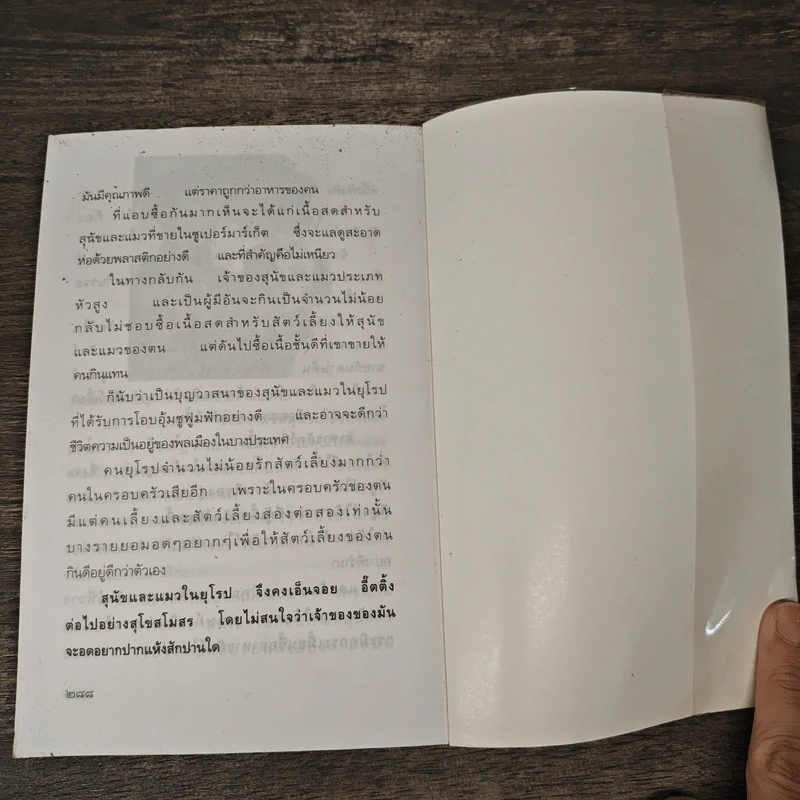 มันมีคุณภาพดี แต่ราคาถูกกว่าอาหารของคน
ที่แอบซื้อกันมากเห็นจะได้แก่เนื้อสดสำหรับ
สุนัขและแมวที่ขายในซูเปอร์มาร์เก็ต ซึ่งจะแลดูสะอาด
ห่อด้วยพลาสติกอย่างดี และที่สำคัญคือไม่เหนียว
ในทางกลับกัน เจ้าของสุนัขและแมวประเภท
หัวสูง และเป็นผู้มีอันจะกินเป็นจำนวนไม่น้อย
กลับไม่ชอบซื้อเนื้อสดสำหรับสัตว์เลี้ยงให้สุนัข
และแมวของตน แต่ดันไปซื้อเนื้อชั้นดีที่เขาขายให้
คนกินแทน
ก็นับว่าเป็นบุญวาสนาของสุนัขและแมวในยุโรป
ที่ได้รับการโอบอุ้มชูฟูมฟักอย่างดี และอาจจะดีกว่า
ชีวิตความเป็นอยู่ของพลเมืองในบางประเทศ
คนยุโรปจำนวนไม่น้อยรักสัตว์เลี้ยงมากกว่า
คนในครอบครัวเสียอีก เพราะในครอบครัวของตน
มีแต่คนเลี้ยงและสัตว์เลี้ยงสองต่อสองเท่านั้น
บางรายยอมอดๆอยากๆเพื่อให้สัตว์เลี้ยงของตน
กินดีอยู่ดีกว่าตัวเอง
สุนัขและแมวในยุโรป จึงคงเอ็นจอย อี๊ตติ้ง
ต่อไปอย่างสุโขสโมสร โดยไม่สนใจว่าเจ้าของของมัน
จะอดอยากปากแห้งสักปานใด
๒๘๘